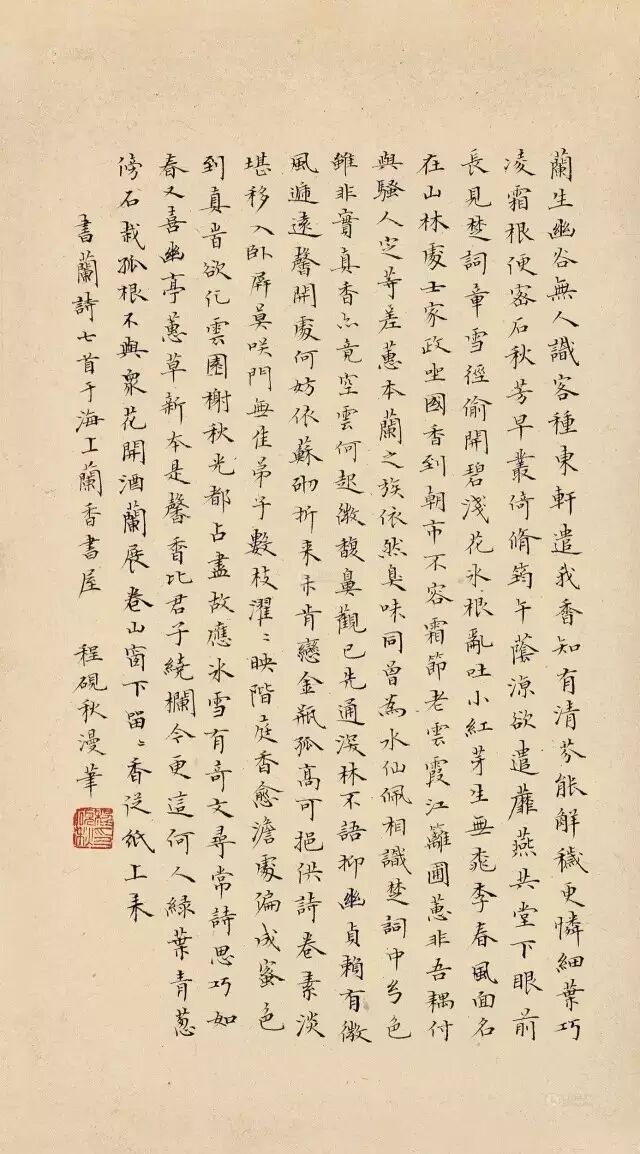 蘭生幽谷無人識客種東軒遺我香知有清芬能解穢更憐細葉巧
凌霜根便密石秋芳早叢倚脩筠午蔭涼欲遣蘼蕪共堂下眼前
長見楚詞章雪徑偷開碧淺花氷根亂吐小紅芽生無桃李春風面名
在山林處士家政坐國香到朝市不容霜節老雲霞江蘺圃蕙非吾耦付
與騷人定等差蕙本蘭之族依然臭味同曾為水仙佩相識楚詞中兮色
雖非實真香亦竟空雲何起微馥鼻觀已先通深林不語抑幽貞賴有微
風遞遠馨開處何妨依蘇砌折来未肯戀金瓶孤高可挹供詩卷素淡
堪移入臥屏莫咲門無佳弟子數枝濯〻映階庭香愈澹處偏成蜜色
到真旹欲化雲園榭秋光都占盡故應氷雪有奇文尋常詩思巧如
春又喜幽亭蕙草新本是馨香比君子繞欄今更這何人綠葉青蔥
傍石栽孤根不與衆花開酒蘭展卷山窗下畱〻香從紙上來
書蘭詩七首于海上蘭香書屋 程硯秋漫筆